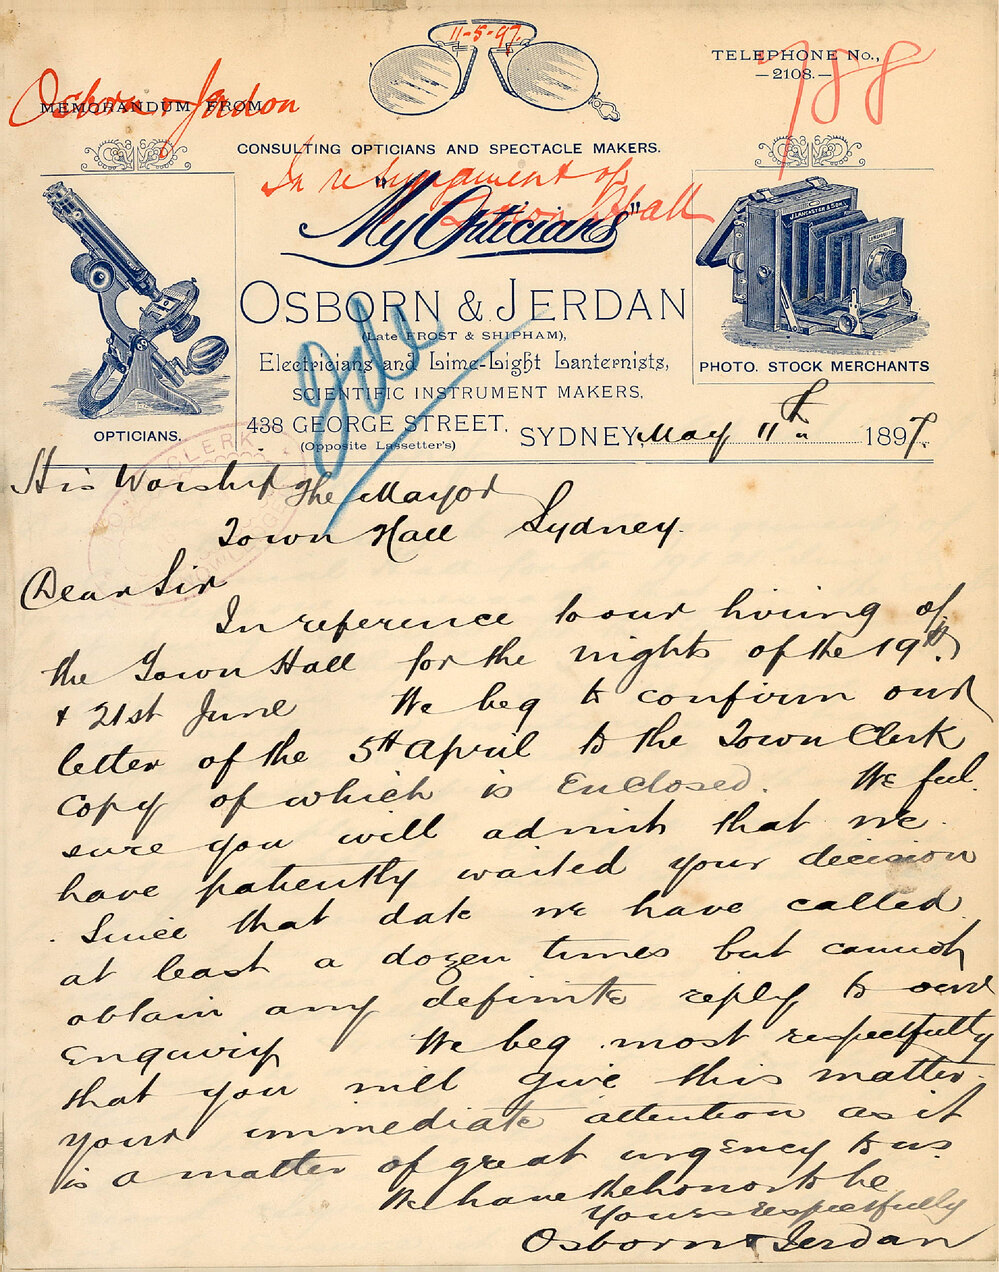 11-5-97.
TELEPHONE No.,
—2108.—
788
Osborn & Jerdon
MEMORANDUM FROM
CONSULTING OPTICIANS AND SPECTACLE MAKERS.
In re
Town Hall
"My Opticians"
J. LANCASTER & SON
OSBORN & JERDAN
(Late FROST & SHIPHAM),
Electricians and Lime-Light Lanternists,
SCIENTIFIC INSTRUMENT MAKERS,
PHOTO. STOCK MERCHANTS
OPTICIANS.
File
438 GEORGE STREET,
(Opposite Lassetter's)
SYDNEY, May 11th 1897.
CLERK
His Worship The Mayor
Town Hall Sydney.
Dear Sir
In reference to our hiring of
the Town Hall for the nights of the 19th
& 21st June We beg to confirm our
letter of the 5th April to the Town Clerk
copy of which is Enclosed. We feel
sure you will admit that we
have patiently waited your decision
. Since that date we have called
at least a dozen times but cannot
obtain any definite reply to our
Enquiry We beg most respectfully
that you will give this matter
your immediate attention as it
is a matter of great urgency to us.
We have the honor to be
Yours respectfully
Osborn & Jerdan